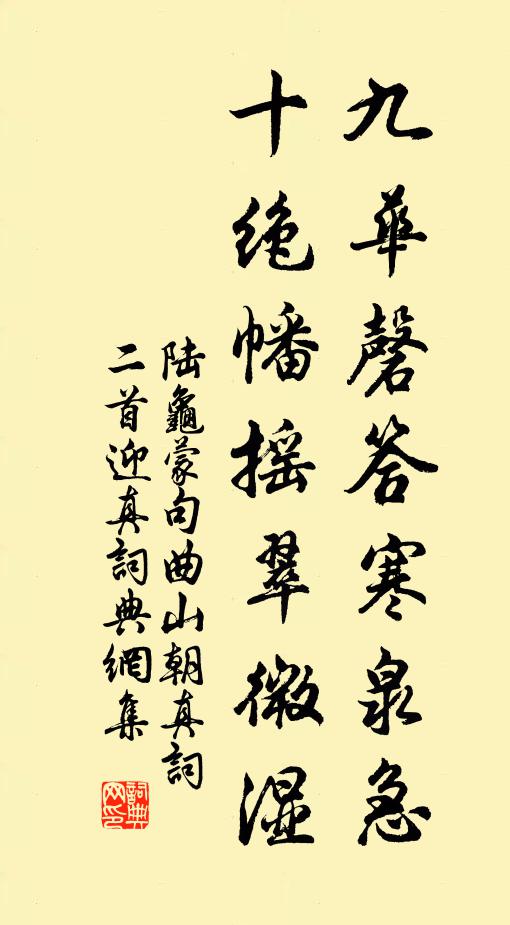 九華磬答寒泉急
十绝幡摇翠微湿
陆龜蒙句曲山朝真詞
二首迎真詞典網集
詞典網印